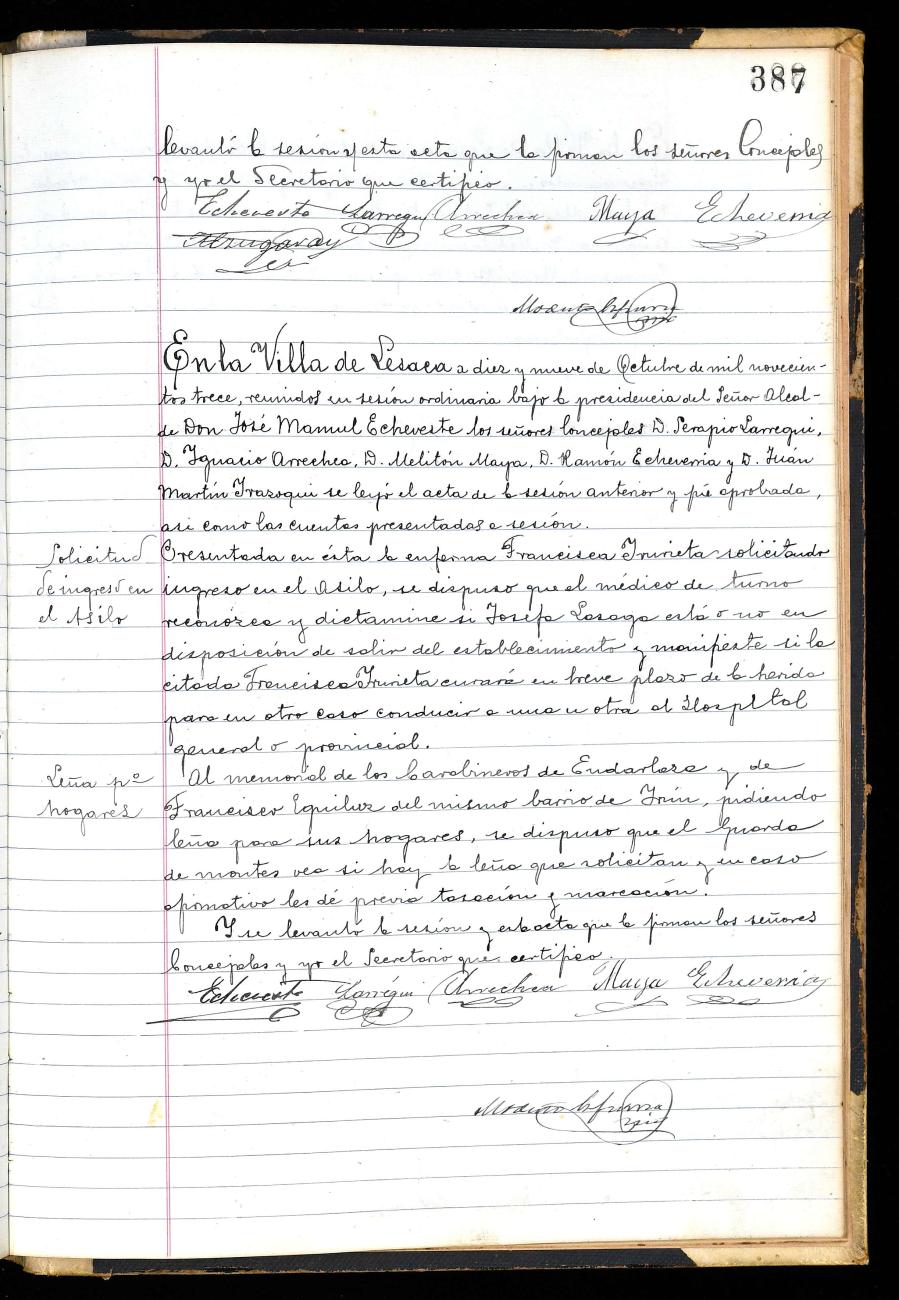 387
levantó la sesión y esta acta que la firman los señores Concejales
y yo el Secretario que certifico.
Echeveste Larregui Arrechea Maya Echeverria
En la Villa de Lesaca a diez y nueve de Octubre de mil novecien-
tos trece, reunidos en sesión ordinaria bajo la presidencia del Señor Alcal-
de Don José Manuel Echeveste los señores Concejales D. Serapio Larregui,
D. Ignacio Arrechea, D. Melitón Maya, D. Ramón Echeverria y D. Juán
Martín Irazoqui se leyó el acta de la sesión anterior y fué aprobada,
asi como las cuentas presentadas a sesión.
Solicitud
de ingreso en
el Asilo
Presentada en ésta la enferma Francisca Irurieta solicitando
ingreso en el Asilo, se dispuso que el médico de turno
reconozca y dictamine si Josefa Lasaga está o no en
disposición de salir del establecimiento y manifieste si la
citada Francisca Irurieta curará en breve plazo de la herida
para en otro caso conducir a una u otra al Hospital
general o provincial.
Leña pª
hogares
Al memorial de los Carabineros de Endarlaza y de
Francisco Eguiluz del mismo barrio de Irún, pidiendo
leña para sus hogares, se dispuso que el Guarda
de montes vea si hay la leña que solicitan y en caso
afirmativo les dé previa tasación y marcación.
Y se levantó la sesión y esta acta que la firman los señores
Concejales y yo el Secretario que certifico.
Echeveste Larregui Arrechea Maya Echeverria